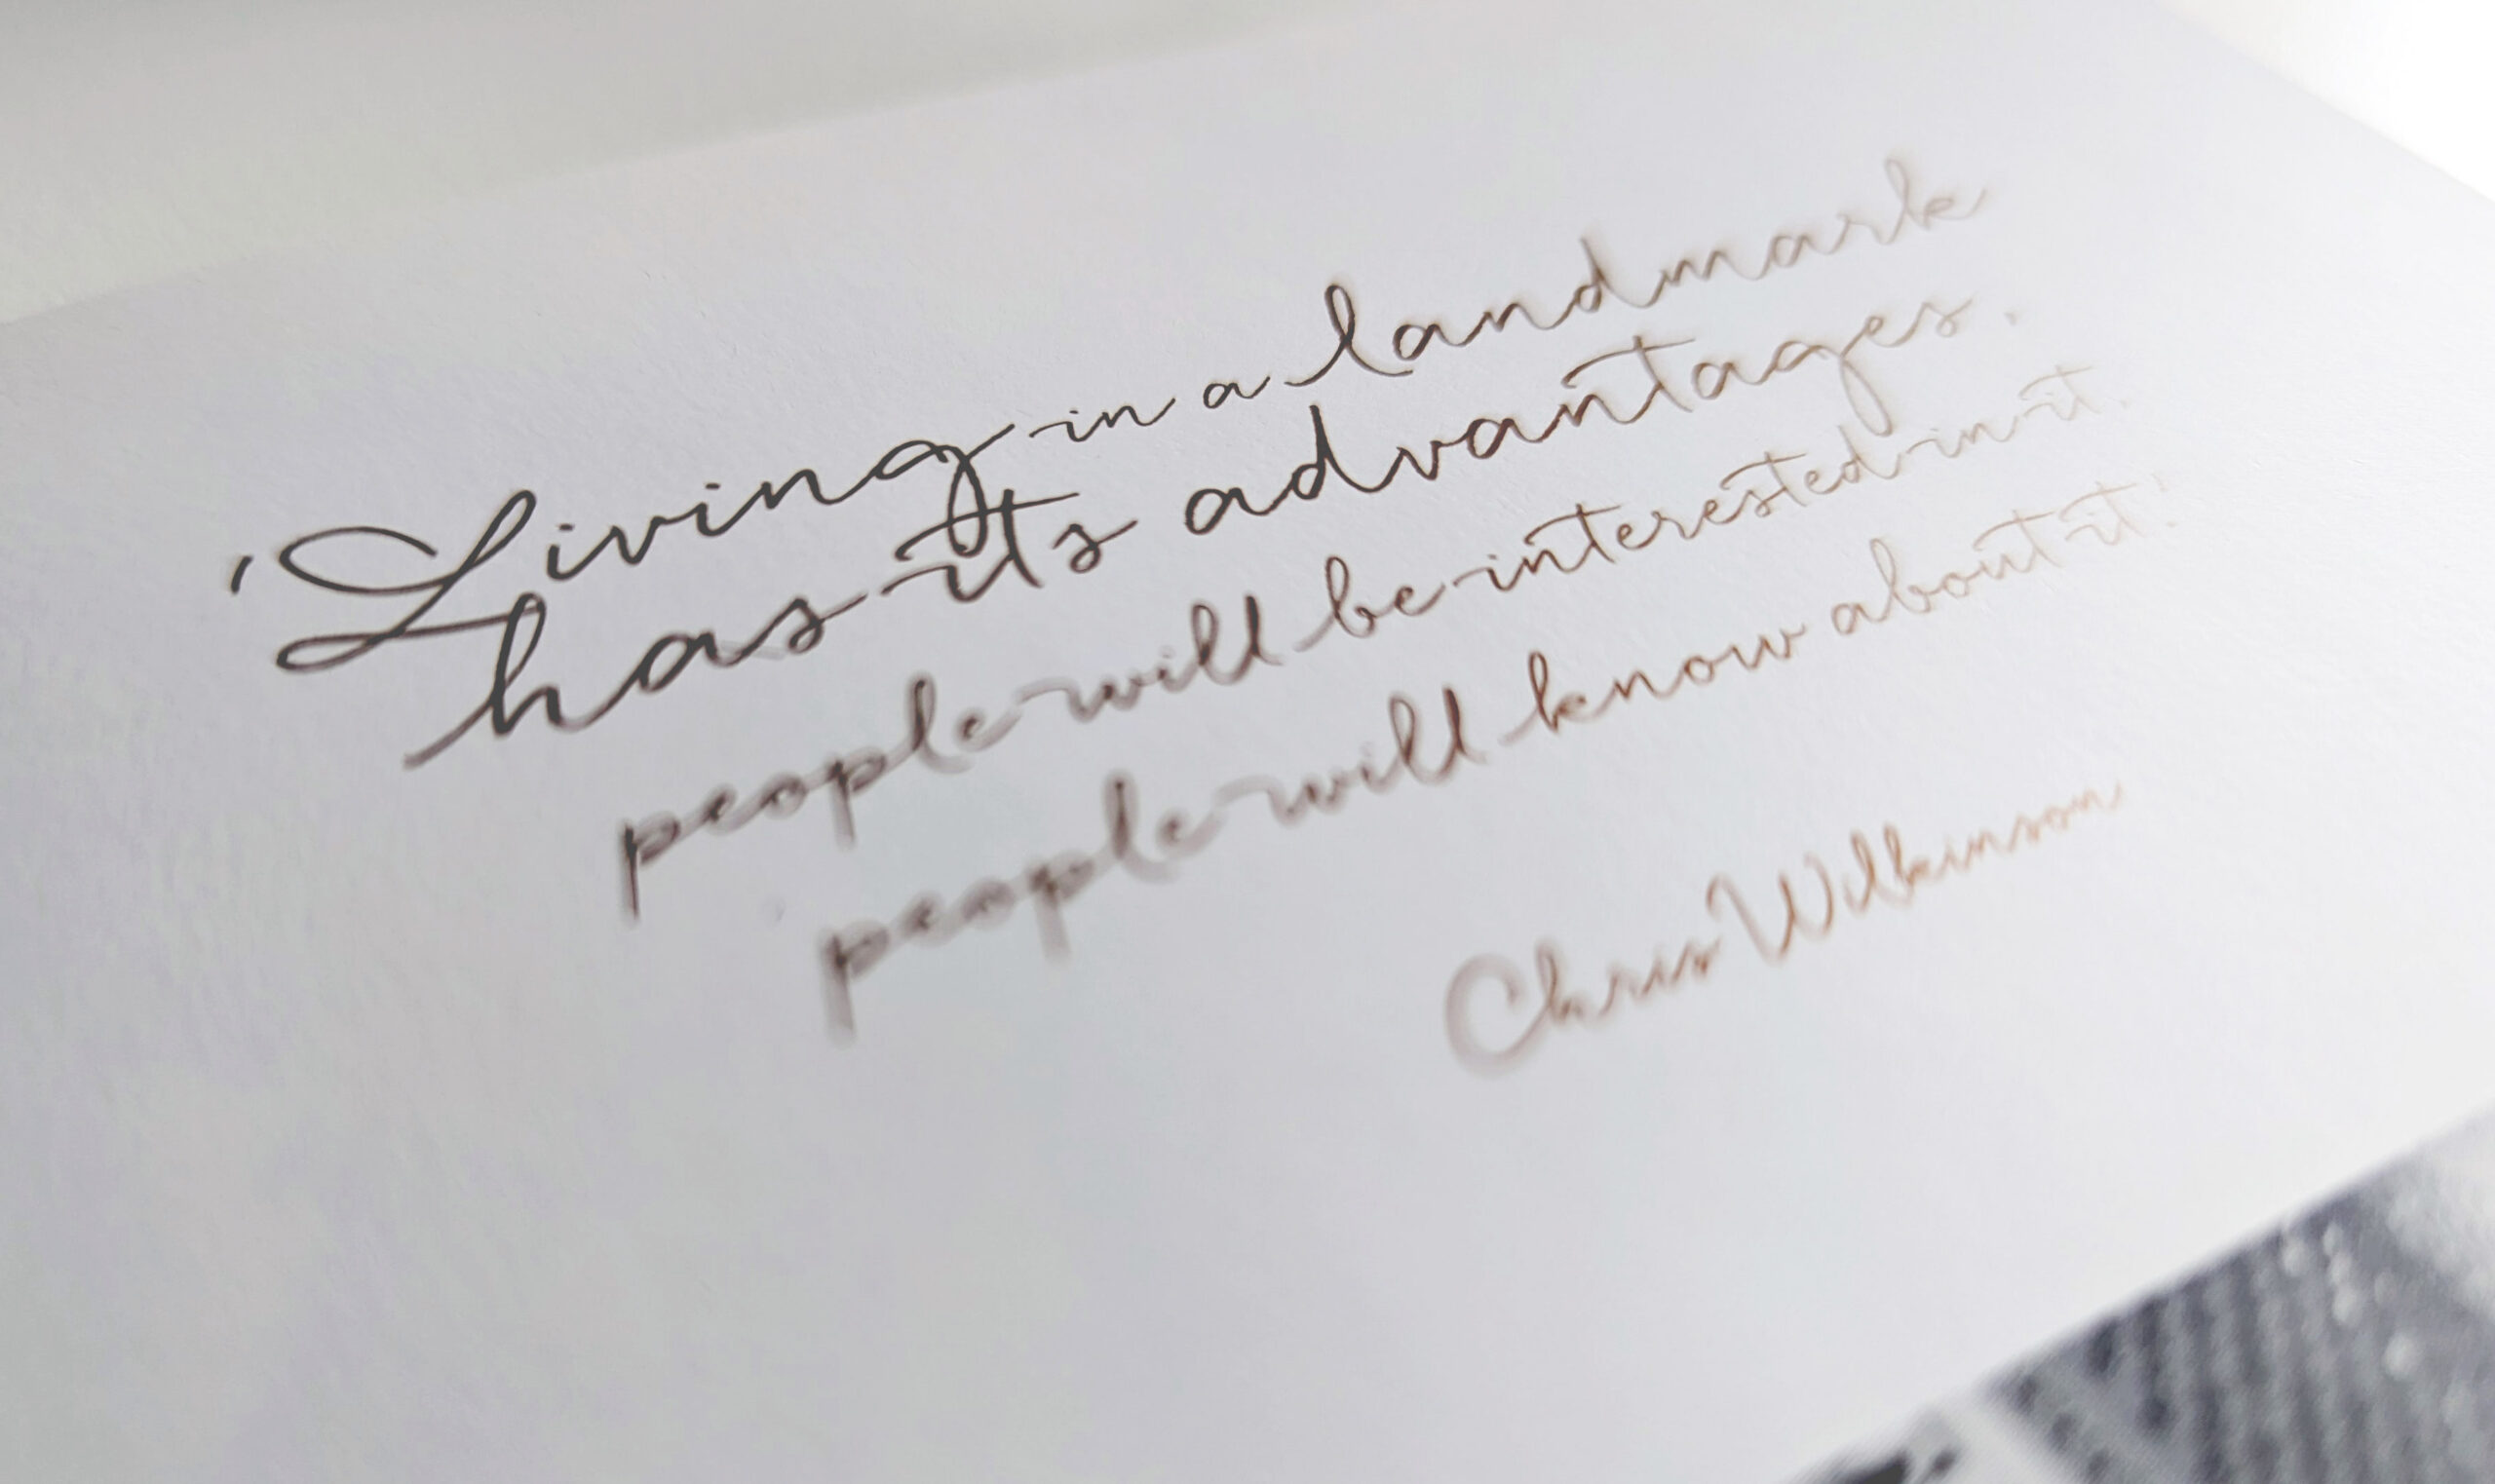 'Living in a landmark
has its advantages.
people will be interested in it.
people will know about it!
Chris Wilkinson